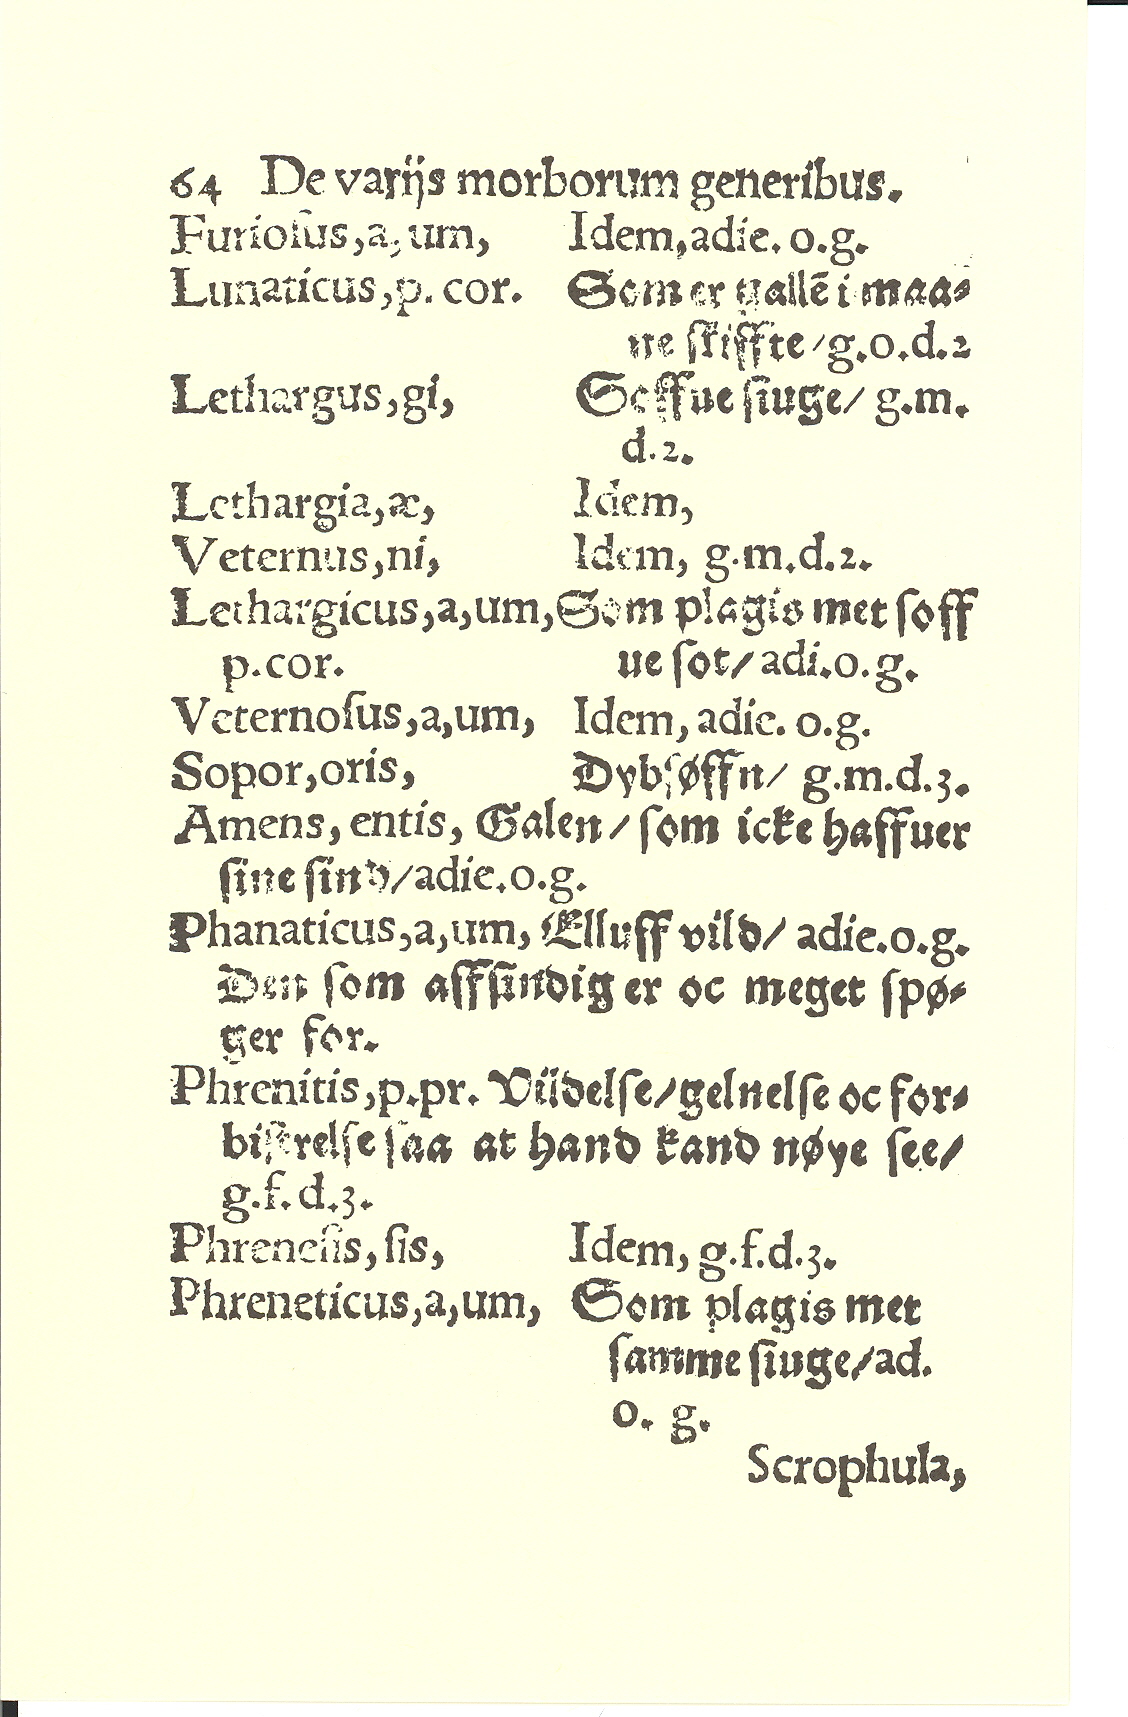 64 De varijs morborum generibus.
Furioſus,a,um, Idem,adie. o.g.
Lunaticus,p. cor. Som er gallē i maa⸗
ne ſkiffte/g.o.d.2
Lethargus,gi, Soffue ſiuge/ g.m.
d.2.
Lethargia,æ, Idem,
Veternus,ni, Idem, g.m.d.2.
Lethargicus,a,um,Som plagis met ſoff
p.cor. ue ſot/adi.o.g.
Veternoſus,a,um, Idem, adie. o.g.
Sopor,oris, Dybſøffn/ g.m.d.3.
Amens, entis, Galen/ſom icke haffuer
ſine ſind/adie.o.g.
Phanaticus,a,um, Elluff vild/ adie.o.g.
Den ſom affſindig er oc meget ſpø⸗
ger for.
Phrenitis,p.pr. Vildelſe/gelnelſe oc for⸗
biſtrelſe ſaa at hand kand nøye ſee/
g.f.d.3.
Phreneſis, ſis, Idem, g.f.d.3.
Phreneticus,a,um, Som plagis met
ſamme ſiuge/ad.
o. g.
Scrophula,